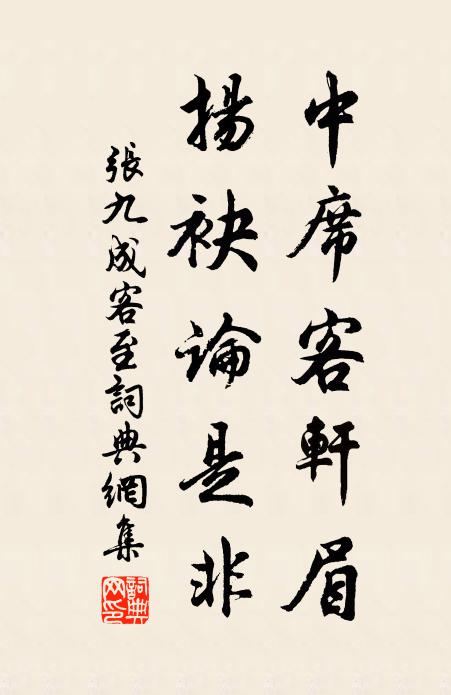 中席客軒眉
揚袂論是非
張九成客至詞典網集
詞典網印